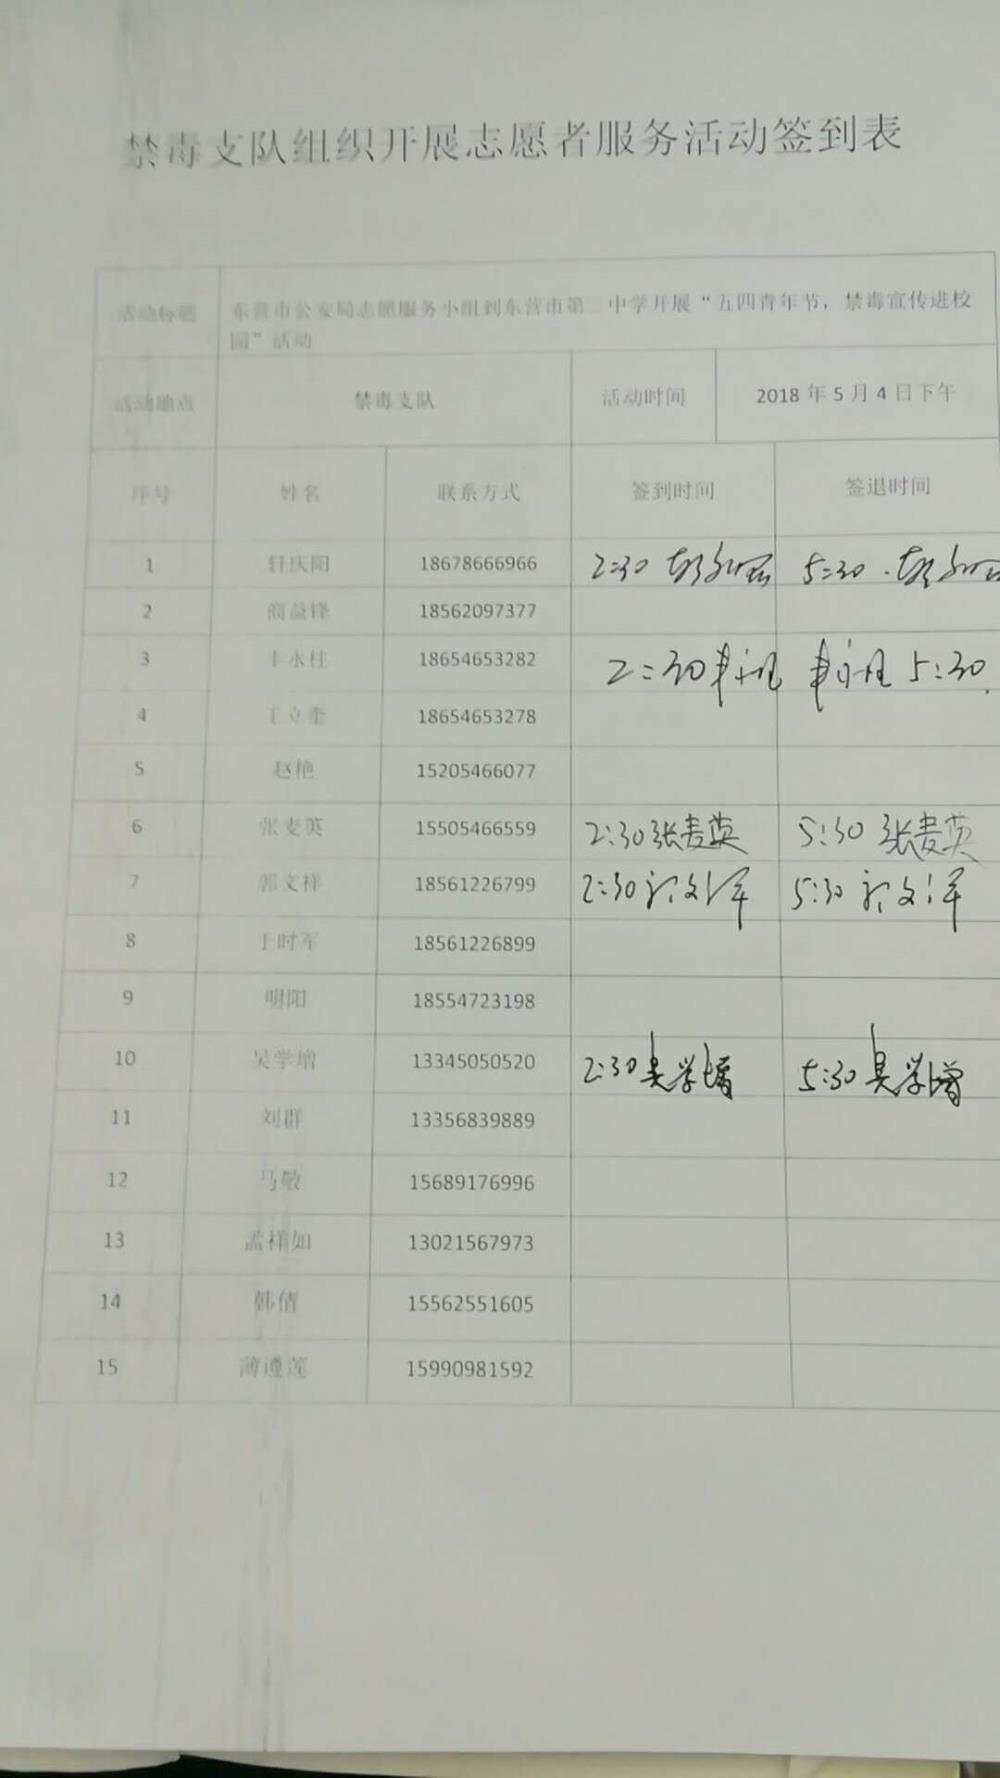 禁毒支队组织开展志愿者服务活动签到表
活动标题 东营市公安局志愿服务小组到东营市第二中学开展“五四青年节，禁毒宣传进校
园”活动
活动地点 禁毒支队 活动时间 2018年5月4日下午
序号 姓名 联系方式 签到时间 签退时间
1 轩庆阳 18678666966 2:30 5:30
2 商益锋 18562097377
3 丰永柱 18654653282 2:30 5:30
4 丁立奎 18654653278
5 赵艳 15205466077
6 张麦英 15505466559 2:30张麦英 5:30 张麦英
7 郭文祥 18561226799 2:30 5:30
8 于时军 18561226899
9 明阳 18554723198
10 吴学增 13345050520 2:30吴学增 5:30吴学增
11 刘群 13356839889
12 马敏 15689176996
13 孟祥如 13021567973
14 韩倩 15562551605
15 薄遵莲 15990981592